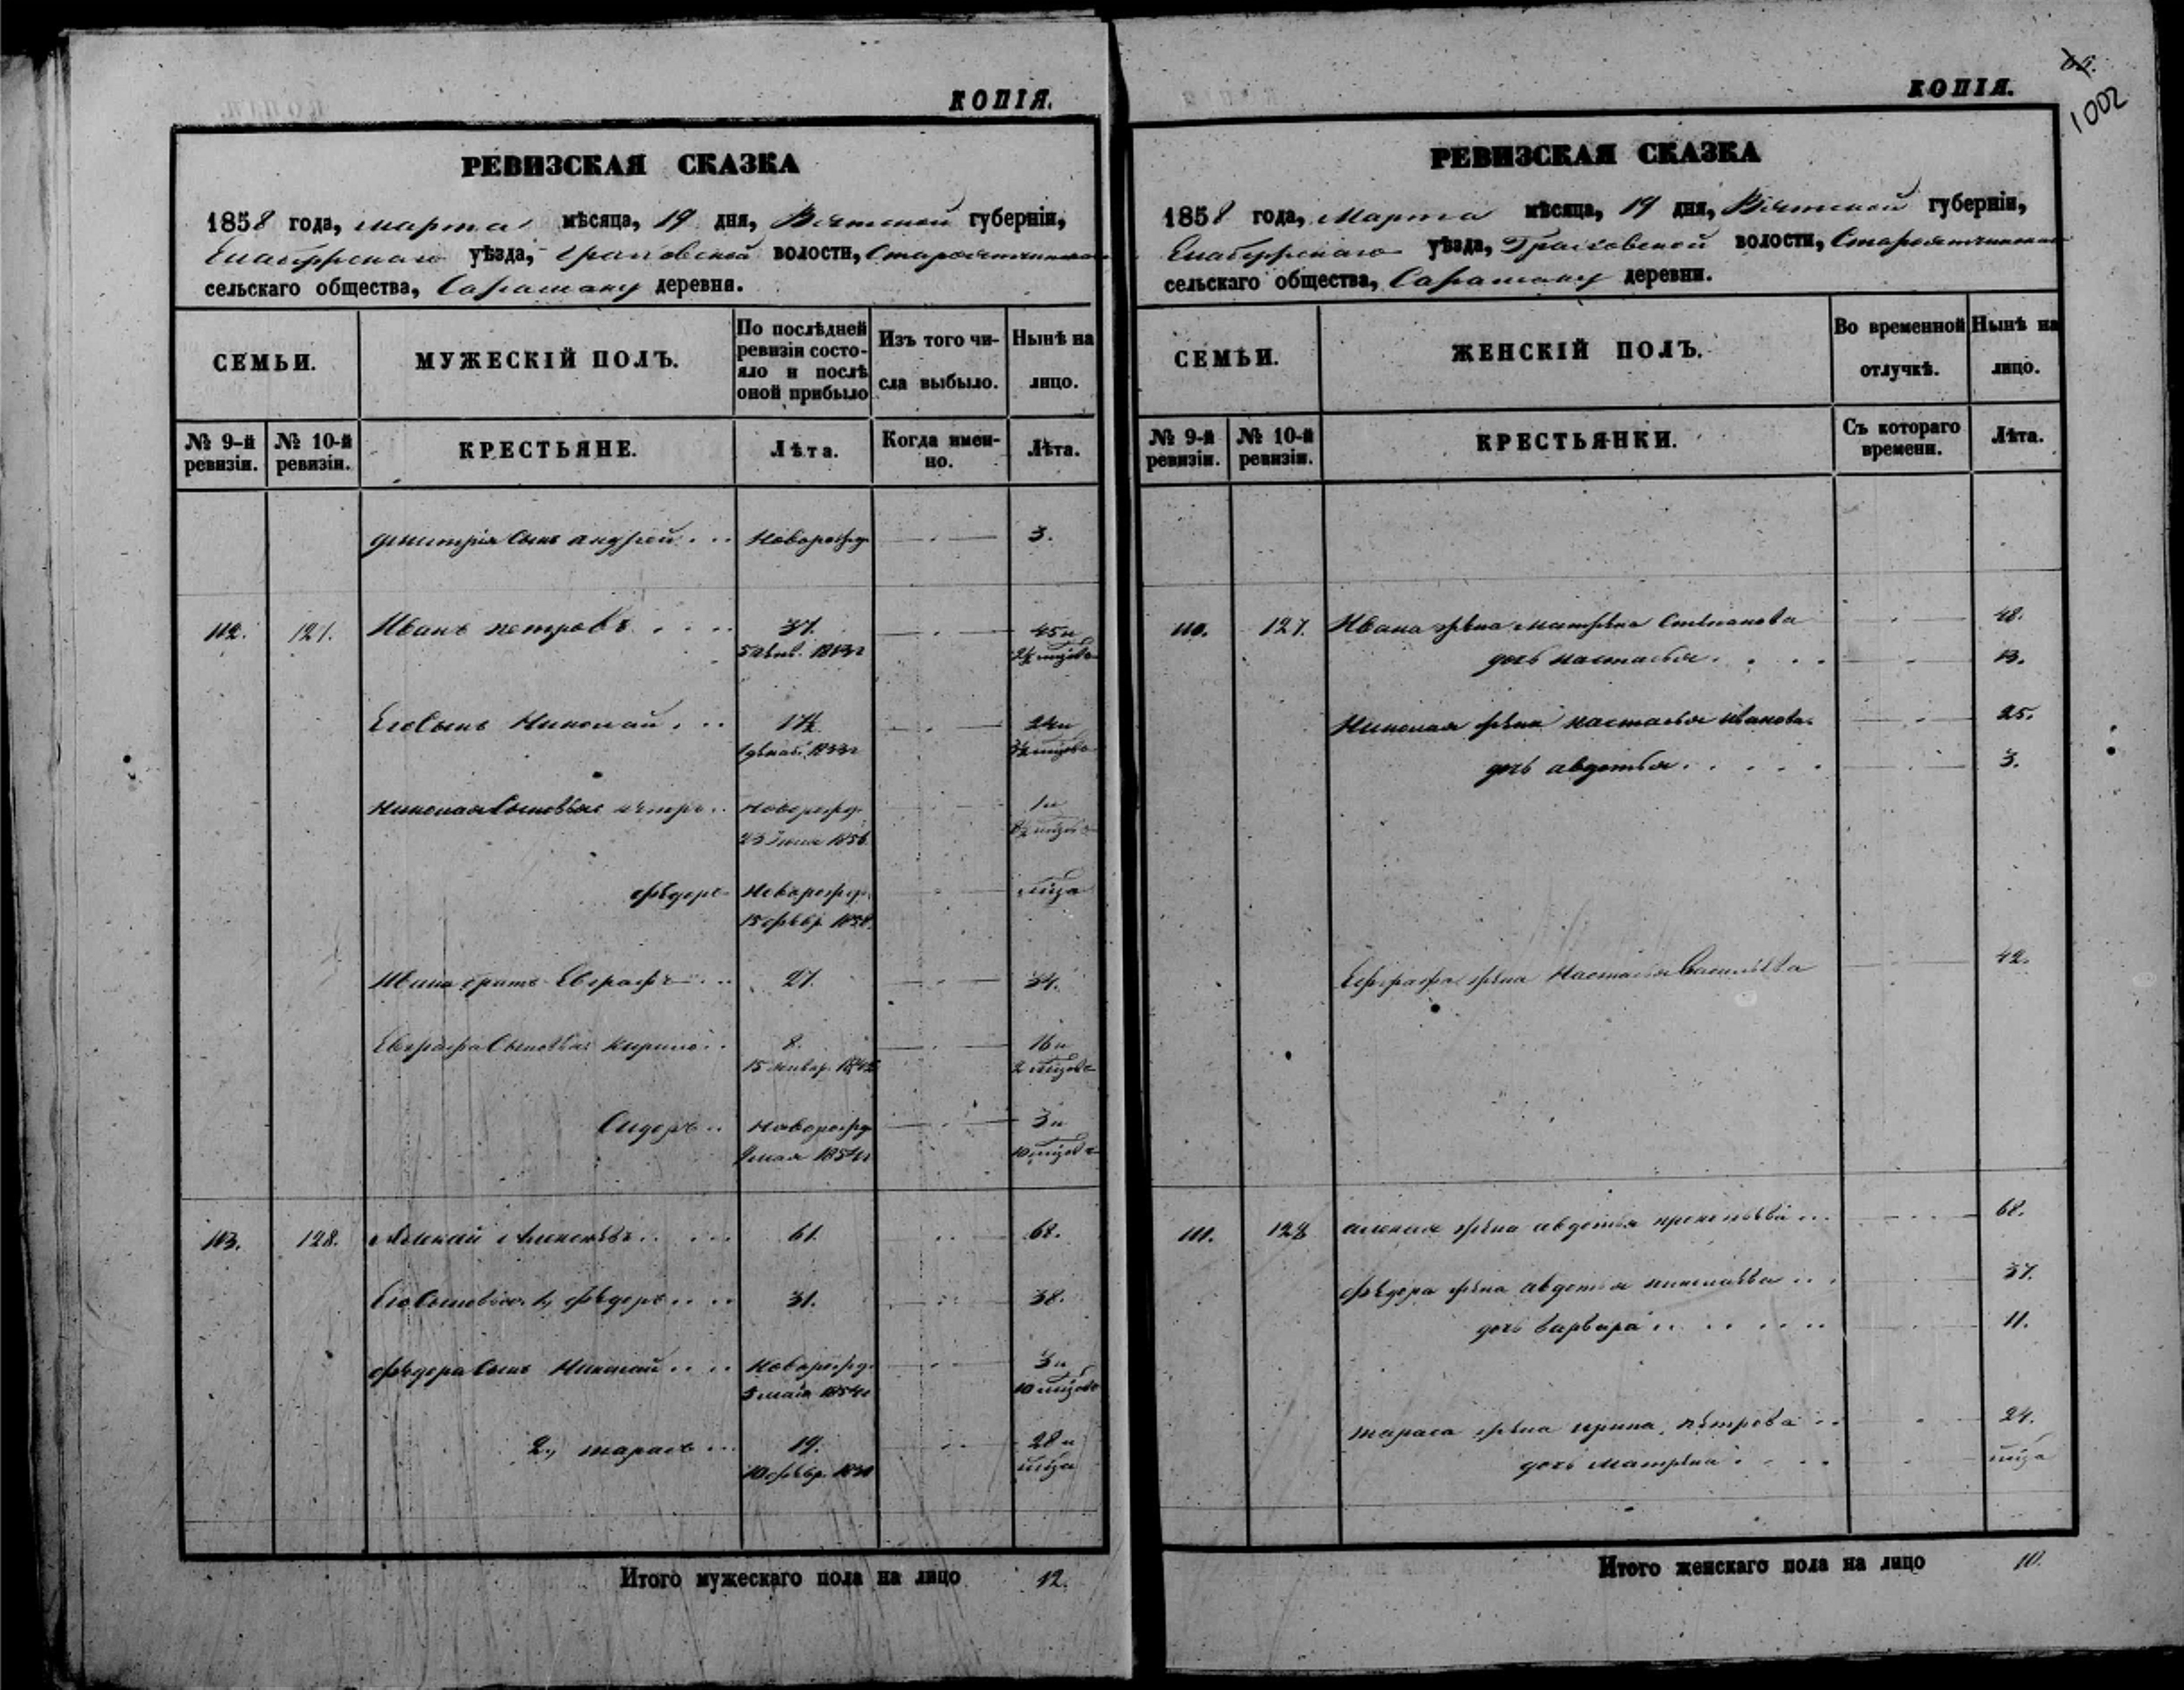 КОПІЯ.
РЕВИЗСКАЯ СКАЗКА
1858 года, марта мѣсяца, 19 дня, Вятской губерніи,
Елабужскаго уѣзда, Граховской волости,
сельскаго общества, Сарамаку деревня.
СЕМЬИ.
МУЖЕСКІЙ ПОЛЪ.
По послѣдней
ревизіи состо-
яло и послѣ
оной прибыло
Изъ того чи-
сла выбыло.
Нынѣ на
лицо.
№ 9-й
ревизіи.
№ 10-й
ревизіи.
КРЕСТЬЯНЕ.
Лѣта.
Когда имен-
но.
Лѣта.
Дмитрія сынъ Андрей . . . Новорожд. 3.
112. 127. Иванъ Петровъ . . . . 37. 45 и
Его сынъ Николай . . . 17½ 24 и
1 декаб. 1833 3½ мѣсяцовъ
Николая сыновья Петръ . . Новорожд. 1 и
23 Іюня 1856. 8½
Ѳедоръ Новорожд. мѣсяца
15 февр. 1858.
Ивана братъ Евграфъ . . . 27. 34.
Евграфа сыновья Кирило . . 8. 16 и
15 январ. 1842 2 мѣсяцовъ
Сидоръ . . Новорожд. 3 и
мая 1854 10 мѣсяцовъ
113. 128. Алексѣй Алексѣевъ . . . . . 61. 68.
Его сыновья 1, Ѳедоръ . . . . 31. 38.
Ѳедора сынъ Николай . . . . Новорожд. 3 и
5 мая 1854 10 мѣсяцовъ
2, Тарасъ . . . 19. 28 и
10 февр. 1830 мѣсяца
Итого мужескаго пола на лицо 12.
КОПІЯ.
1002
РЕВИЗСКАЯ СКАЗКА
1858 года, Марта мѣсяца, 19 дня, Вятской губерніи,
Елабужскаго уѣзда, Граховской волости,
сельскаго общества, Сарамаку деревни.
СЕМЬИ.
ЖЕНСКІЙ ПОЛЪ.
Во временной
отлучкѣ.
Нынѣ на
лицо.
№ 9-й
ревизіи.
№ 10-й
ревизіи.
КРЕСТЬЯНКИ.
Съ котораго
времени.
Лѣта.
110. 127. Ивана жена Матрена Степанова 48.
дочь Настасья . . . . 13.
Николая жена Настасья Иванова 25.
дочь Авдотья . . . . . 3.
Евграфа жена Настасья Васильева 42.
111. 128 Алексѣя жена Авдотья Прокопьева . . . 68.
Ѳедора жена Авдотья Николаева . . . 37.
дочь Варвара . . . . . . 11.
Тараса жена Ирина Петрова . . 24.
дочь Матрена . . . . мѣсяца
Итого женскаго пола на лицо 10.